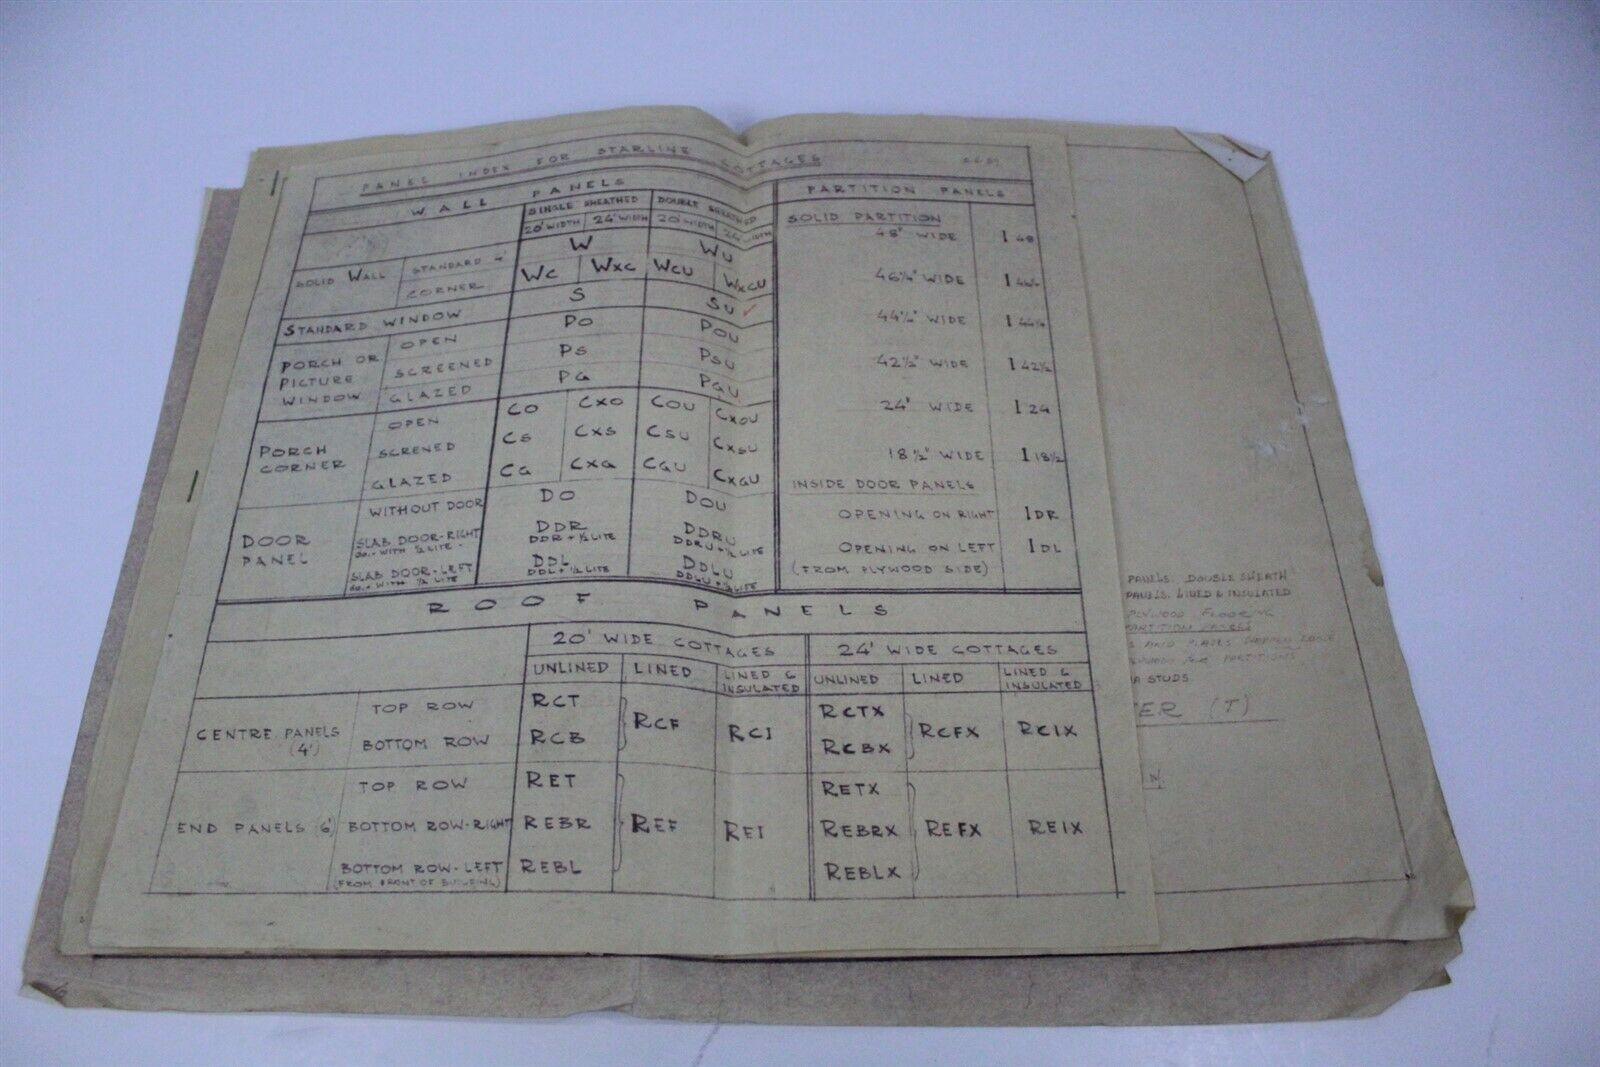 PANEL INDEX FOR STARLINE COTTAGES
WALL PANELS
SINGLE SHEATHED DOUBLE SHEATHED
20' WIDTH 24' WIDTH 20' WIDTH 24' WIDTH
SOLID WALL STANDARD 4' W WU
CORNER WC WXC WCU WXCU
STANDARD WINDOW S SU ✓
PORCH OR PICTURE WINDOW
OPEN PO POU
SCREENED PS PSU
GLAZED PG PGU
PORCH CORNER
OPEN CO CXO COU CXOU
SCREENED CS CXS CSU CXSU
GLAZED CG CXG CGU CXGU
DOOR PANEL
WITHOUT DOOR DO DOU
SLAB DOOR-RIGHT DDR DDRU
DO. WITH ½ LITE DDR + ½ LITE DDRU + ½ LITE
SLAB DOOR-LEFT DDL DDLU
DO. WITH ½ LITE DDL + ½ LITE DDLU + ½ LITE
PARTITION PANELS
SOLID PARTITION
48" WIDE I 48
46¼" WIDE I 46¼
44¼" WIDE I 44¼
42½" WIDE I 42½
24" WIDE I 24
18½" WIDE I 18½
INSIDE DOOR PANELS
OPENING ON RIGHT IDR
OPENING ON LEFT IDL
(FROM PLYWOOD SIDE)
ROOF PANELS
20' WIDE COTTAGES 24' WIDE COTTAGES
UNLINED LINED LINED & INSULATED UNLINED LINED LINED & INSULATED
CENTRE PANELS (4')
TOP ROW RCT RCF RCI RCTX RCFX RCIX
BOTTOM ROW RCB RCBX
END PANELS (6')
TOP ROW RET RETX
BOTTOM ROW-RIGHT REBR REF REI REBRX REFX REIX
BOTTOM ROW-LEFT REBL REBLX
(FROM FRONT OF BUILDING)
PANELS. DOUBLE SHEATH
PANELS. LINED & INSULATED
PLYWOOD FLOORING
PARTITION PANELS
AND PLATES
FOR PARTITIONS
STUDS
TER (T)